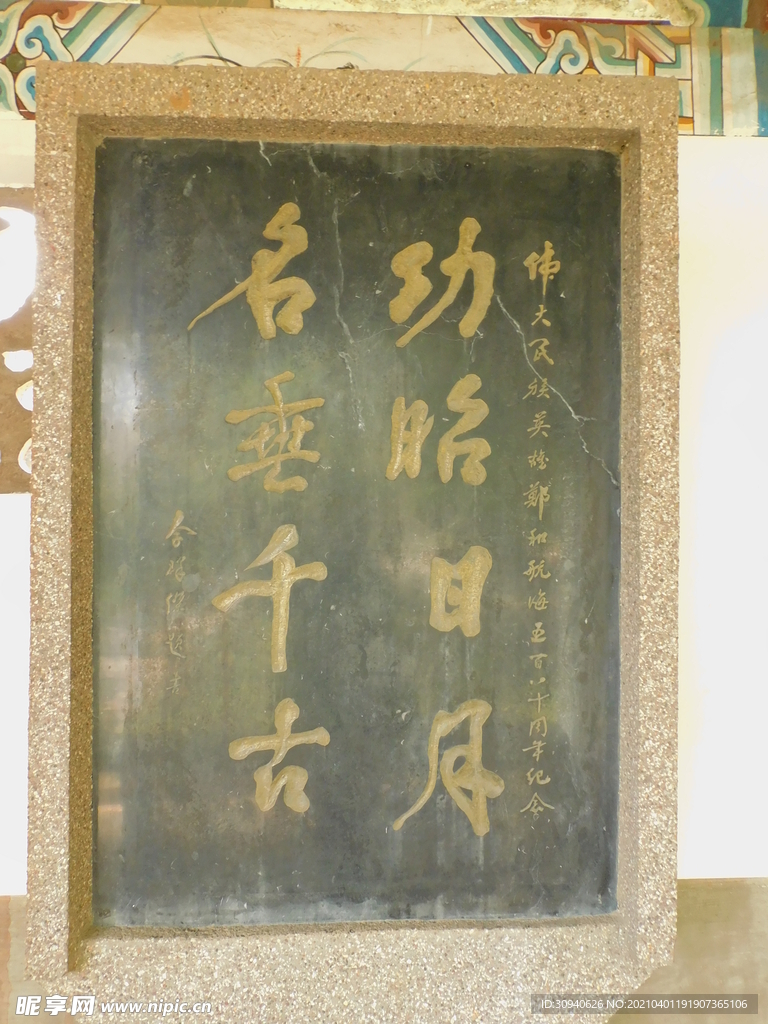 伟大民族英雄郑和航海五百八十周年纪念
功昭日月
名垂千古
题书
昵享网 www.nipic.cn
ID:30940626 NO:20210401191907365106